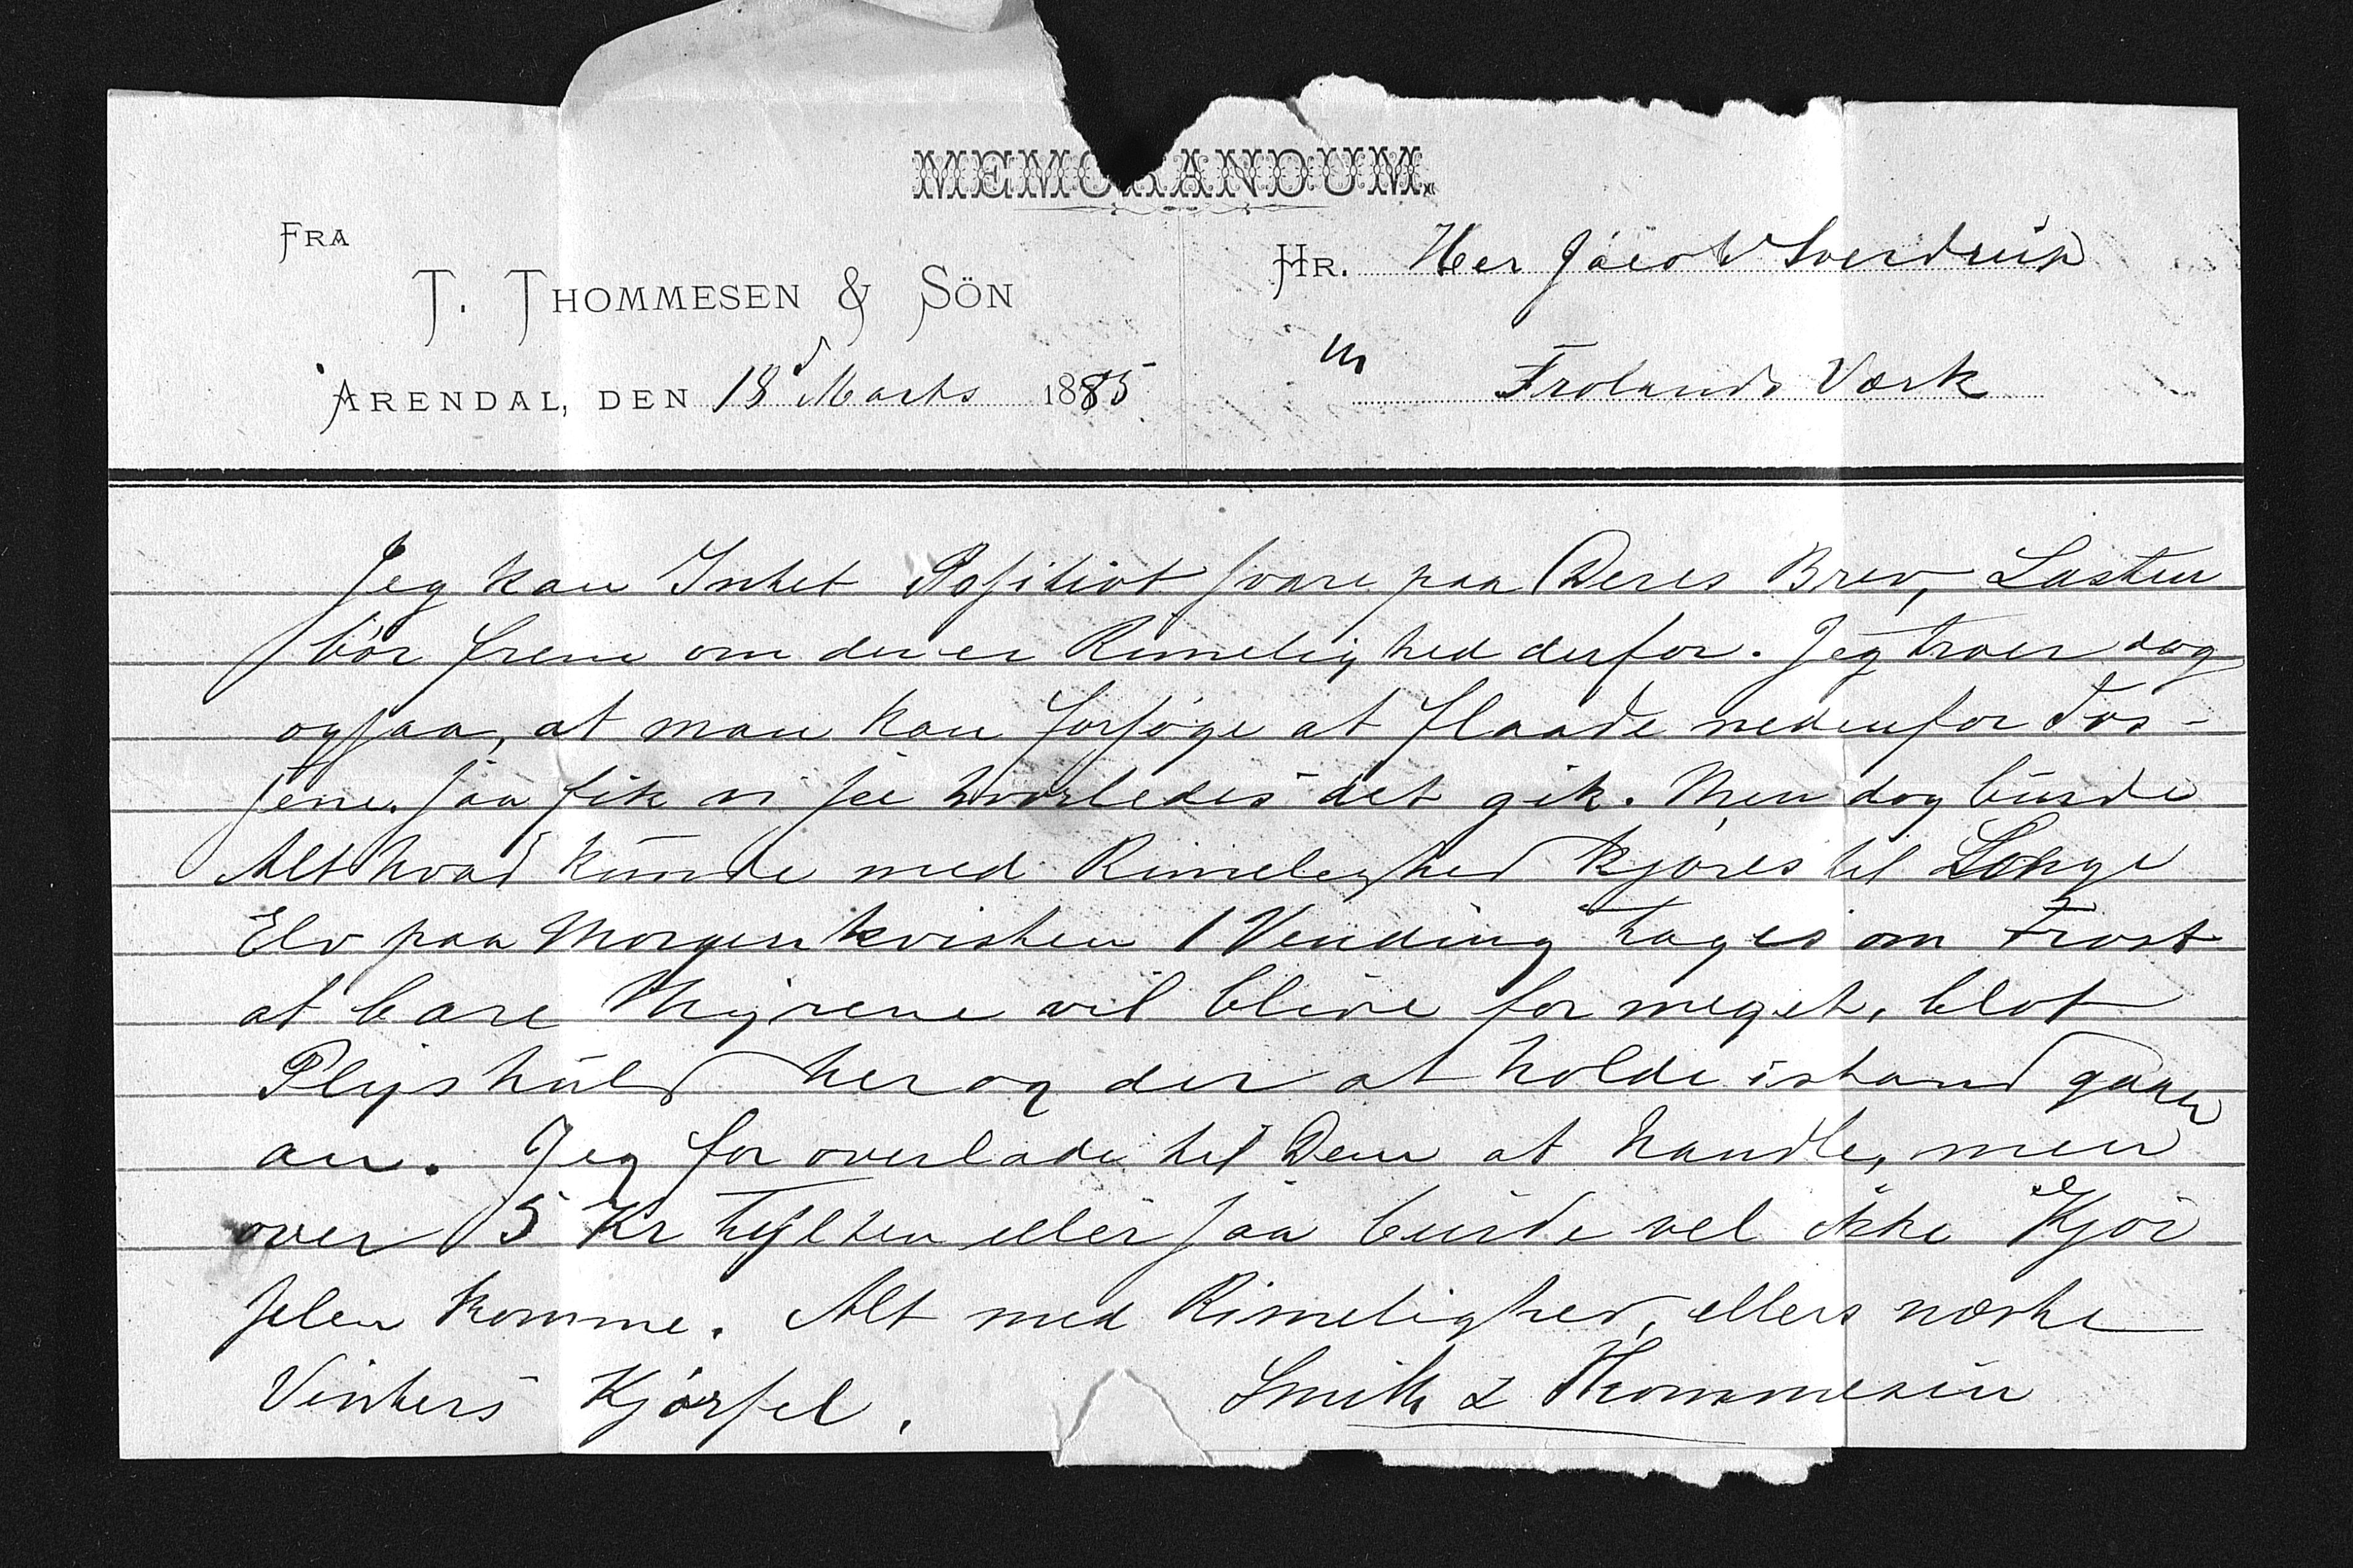 MEMORANDUM.
FRA
T. THOMMESEN & SÖN
ARENDAL, DEN 18d Marts 1885
HR. Herr Jacob Sverdrup
Frolands Værk
Jeg kan Intet Positivt svare paa Deres Brev, Lasten
bör frem om der er Rimelighed derfor. Jeg troer dog
ogsaa, at man kan forsöge at flaade nedenfor Fos-
sene, saa fik vi see hvorledes det gik. Men dog burde
Alt hvad kunde med Rimelighed kjöres til Longe
Elv paa Morgenkvisten 1 Vending tages om Frost
at bare Myrene vil blive for meget, blot
her og der at holde istand gaaer
an. Jeg for overlade til Dem at handle, men
over 5 Kr Tylten eller saa burde vel ikke Kjör
selen komme. Alt med Rimelighed, ellers næste
Vinters Kjörsel.
Smith & Thommesen